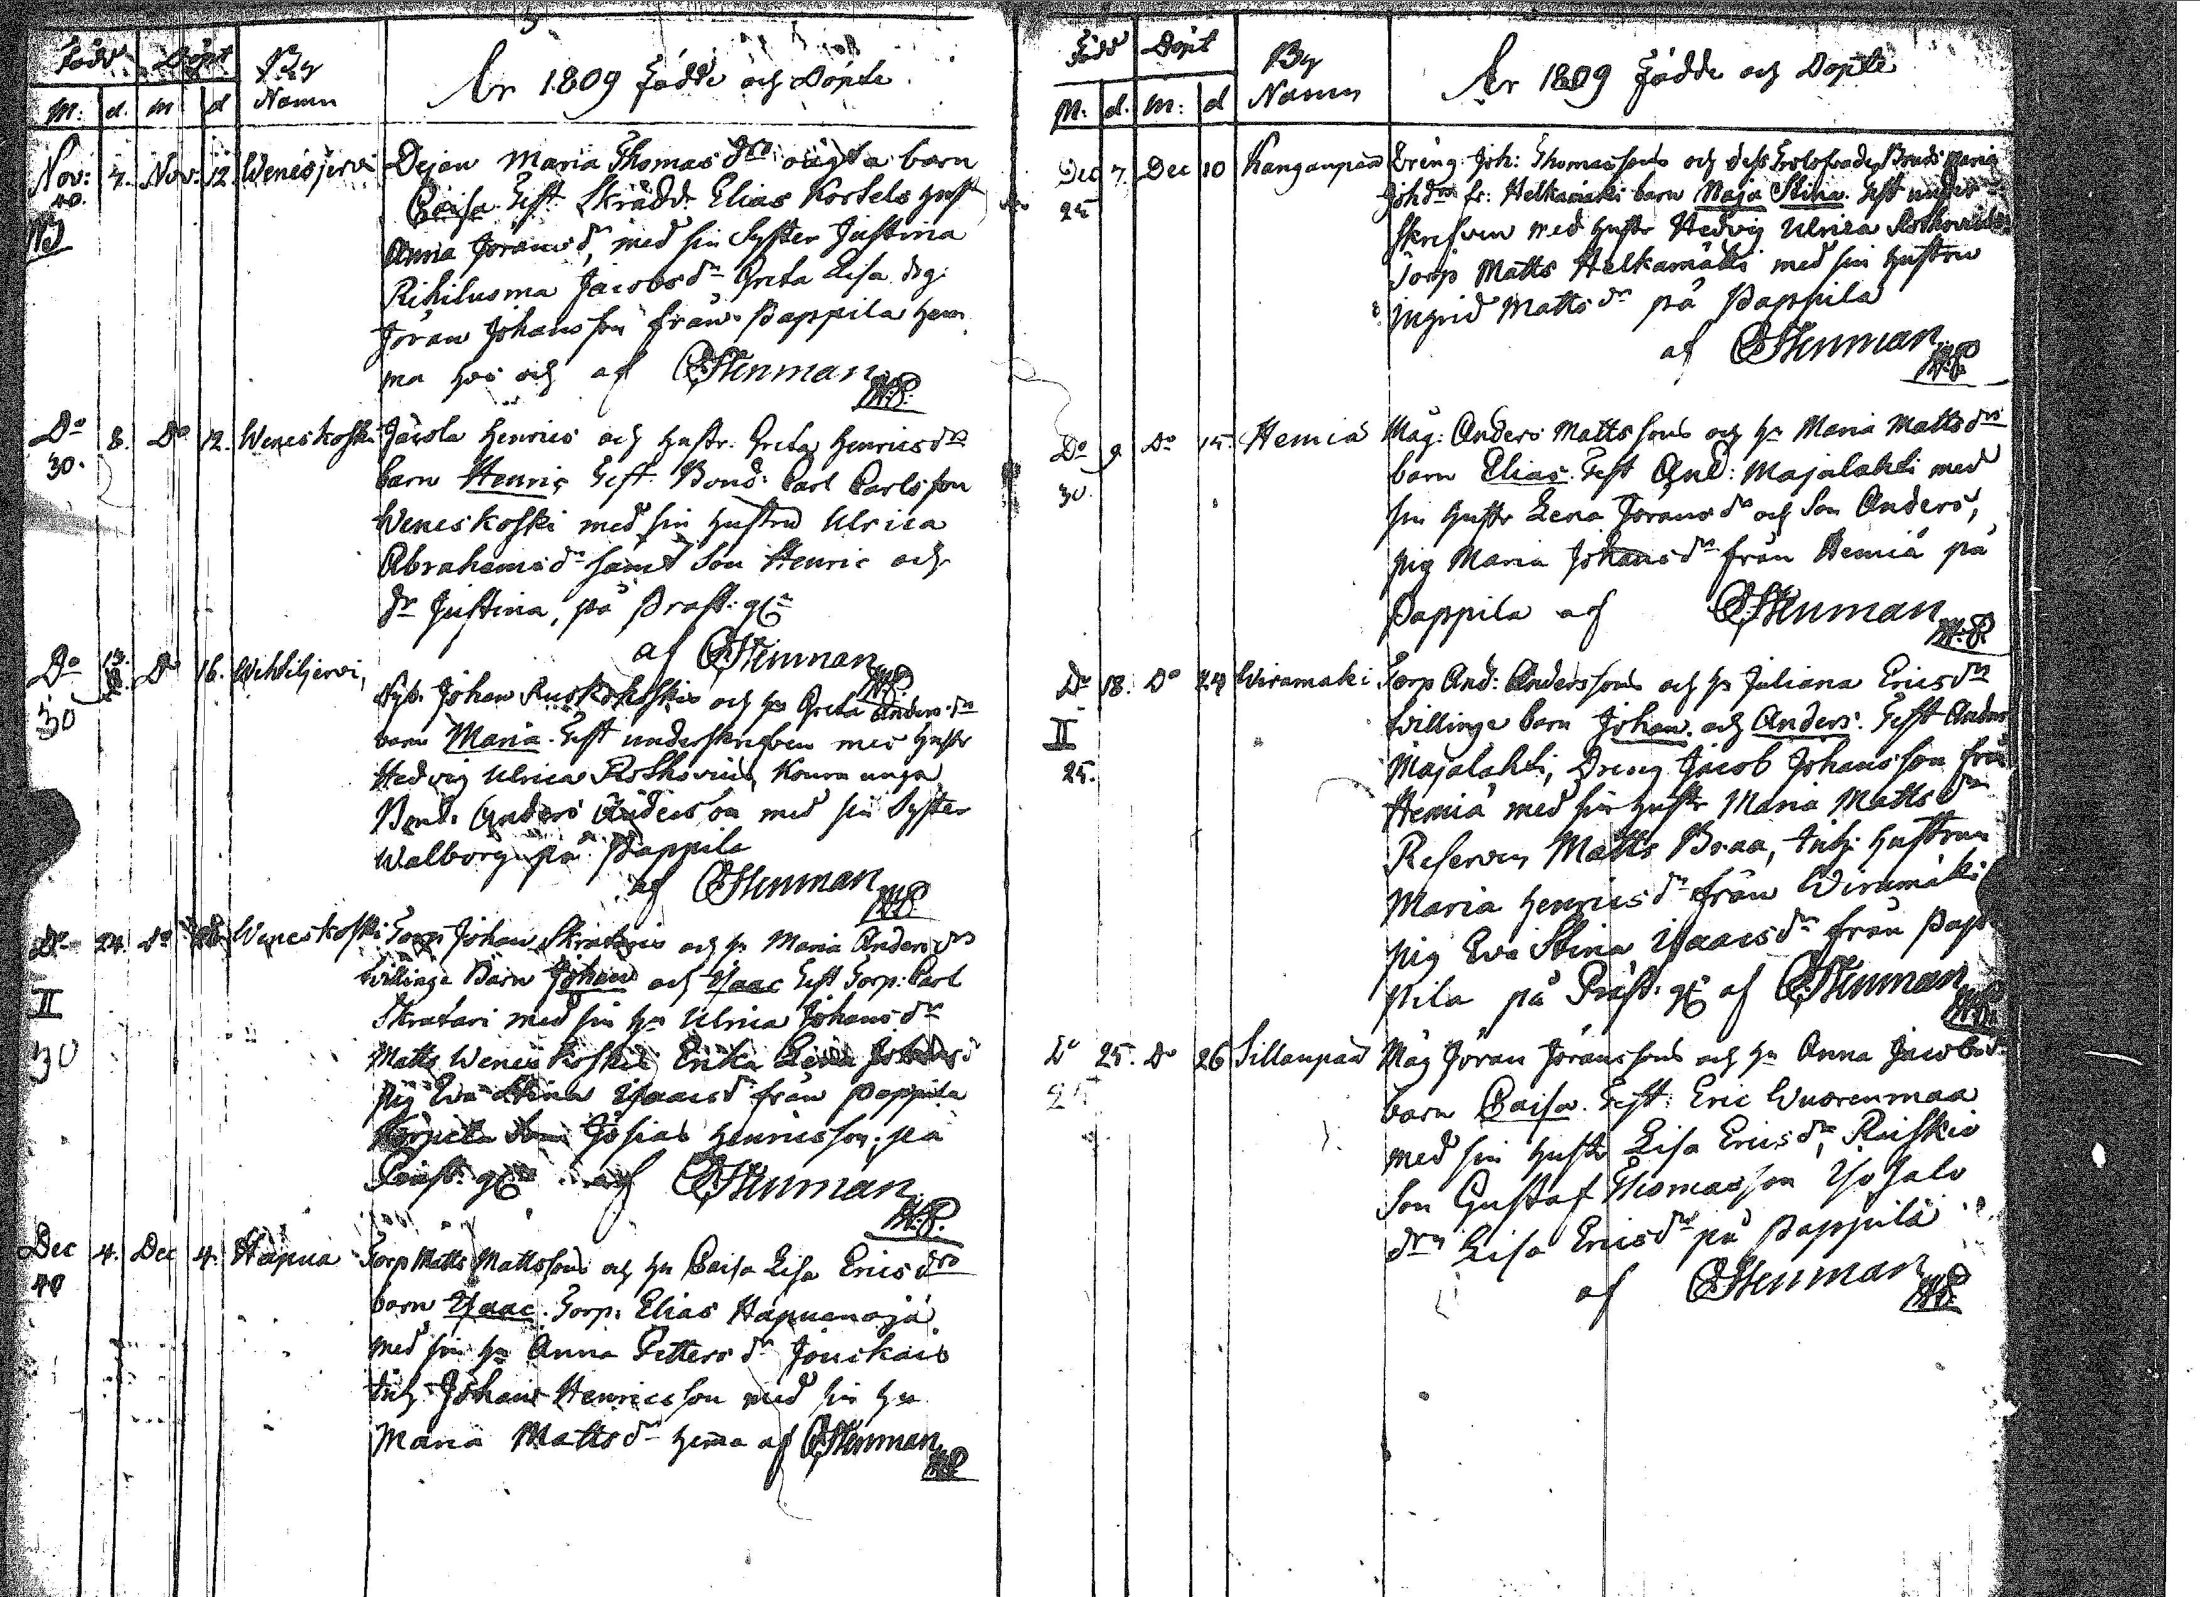 Född Döpt By
M: d. m d Namn
År 1809 Födde och Döpte
Nov: 7. Nov: 12. Wenesjervi Dejan Maria Thomas Drs oägta barn
40. Caisa Teft. Skrädd. Elias Korkels hust
Anna Jörans dr, med sin Syster Justina
Rihilusma Jacobs dr Greta Lisa dr
Jöran Johansson från Pappila hem
ma hos och af CStenman
M.P.
Do 8. Do 12. Weneskoski Henrics och hustr. Greta Henrics dr
30. barn Henric Teft. Bond: Carl Carlsson
Weneskoski med sin hustru Ulrica
Abrahams dr samt Son Henric och
dr Justina, på Präst: g
af CStenman
M.P.
Do 13. Do 16. Wehkiljervi,
30 Nyb. Johan Ruskokoskis och hu Greta Anders dr
barn Maria. Teft underskrefven med hustr
Hedvig Ulrica Rothovius, Konra unga
Bond. Anders Andersson med sin Syster
Walborg på Pappila
af CStenman
M.P.
Do 24. Do Weneskoski Torp: Johan Skrataris och hu Maria Anders drs
II tvillinga Barn Johan och Isaac Teft Torp: Carl
Skratari med sin hu Ulrica Johans dr
30 Matts Weneskoski Erika Lena
pig Eva Stina Isaacs dr från Pappila
Son Josias Henricsson, på
Präst. g af CStenman
M.P.
Dec 4. Dec 4. Hapua Torp Matts Mattssons och hu Caisa Lisa Erics drs
40 barn Isaac. Torp: Elias Hapuanoja
med sin hu Anna Petters dr Jouskais
inh. Johan Henricsson med sin hu
Maria Matts dr hemma af CStenman
M.P.
Född Döpt By
M. d. M: d Namn
År 1809 Födde och Döpte
Dec 7. Dec 10 Kanganpää Dräng Joh: Thomassons och dess Maria
25 Joh drs fr: Helkamäki barn Maja Stina. Teft under
skrefven med hustr Hedvig Ulrica Rothovius
Torp Matts Helkamäki med sin hustru
Ingrid Matts dr på Pappila
af CStenman
M.P.
Do 9 Do 15. Hemiä Måg: Anders Mattssons och hu Maria Matts drs
30 barn Elias. Teft And: Majalahti med
sin hustr Lena Jörans dr och Son Anders,
pig Maria Johans dr från Hemiä på
Pappila af CStenman
M.P.
Do 18. Do 24 Wiramäki Torp And: Anderssons och hu Juliana Erics drs
II tvillinge barn Johan och Anders. Teft Anders
25. Majalahti, Dreng Jacob Johansson från
Hemiä med sin hustr Maria Matts dr
Reserven Matts Braa, inh: hustrun
Maria Henrics dr från Wiramäki
pig Eva Stina Isaacs dr från Pap
pila på Präst. g af CStenman
M.P.
Do 25. Do 26 Sillanpää Måg Jöran Jöranssons och hu Anna Jacobs dr
25 barn Caisa. Teft: Eric Wuorenmaa
med sin hustr Lisa Erics dr, Raiskio
Son Gustaf Thomasson Isosalo
dr Lisa Erics dr på Pappila
af CStenman
M.P.